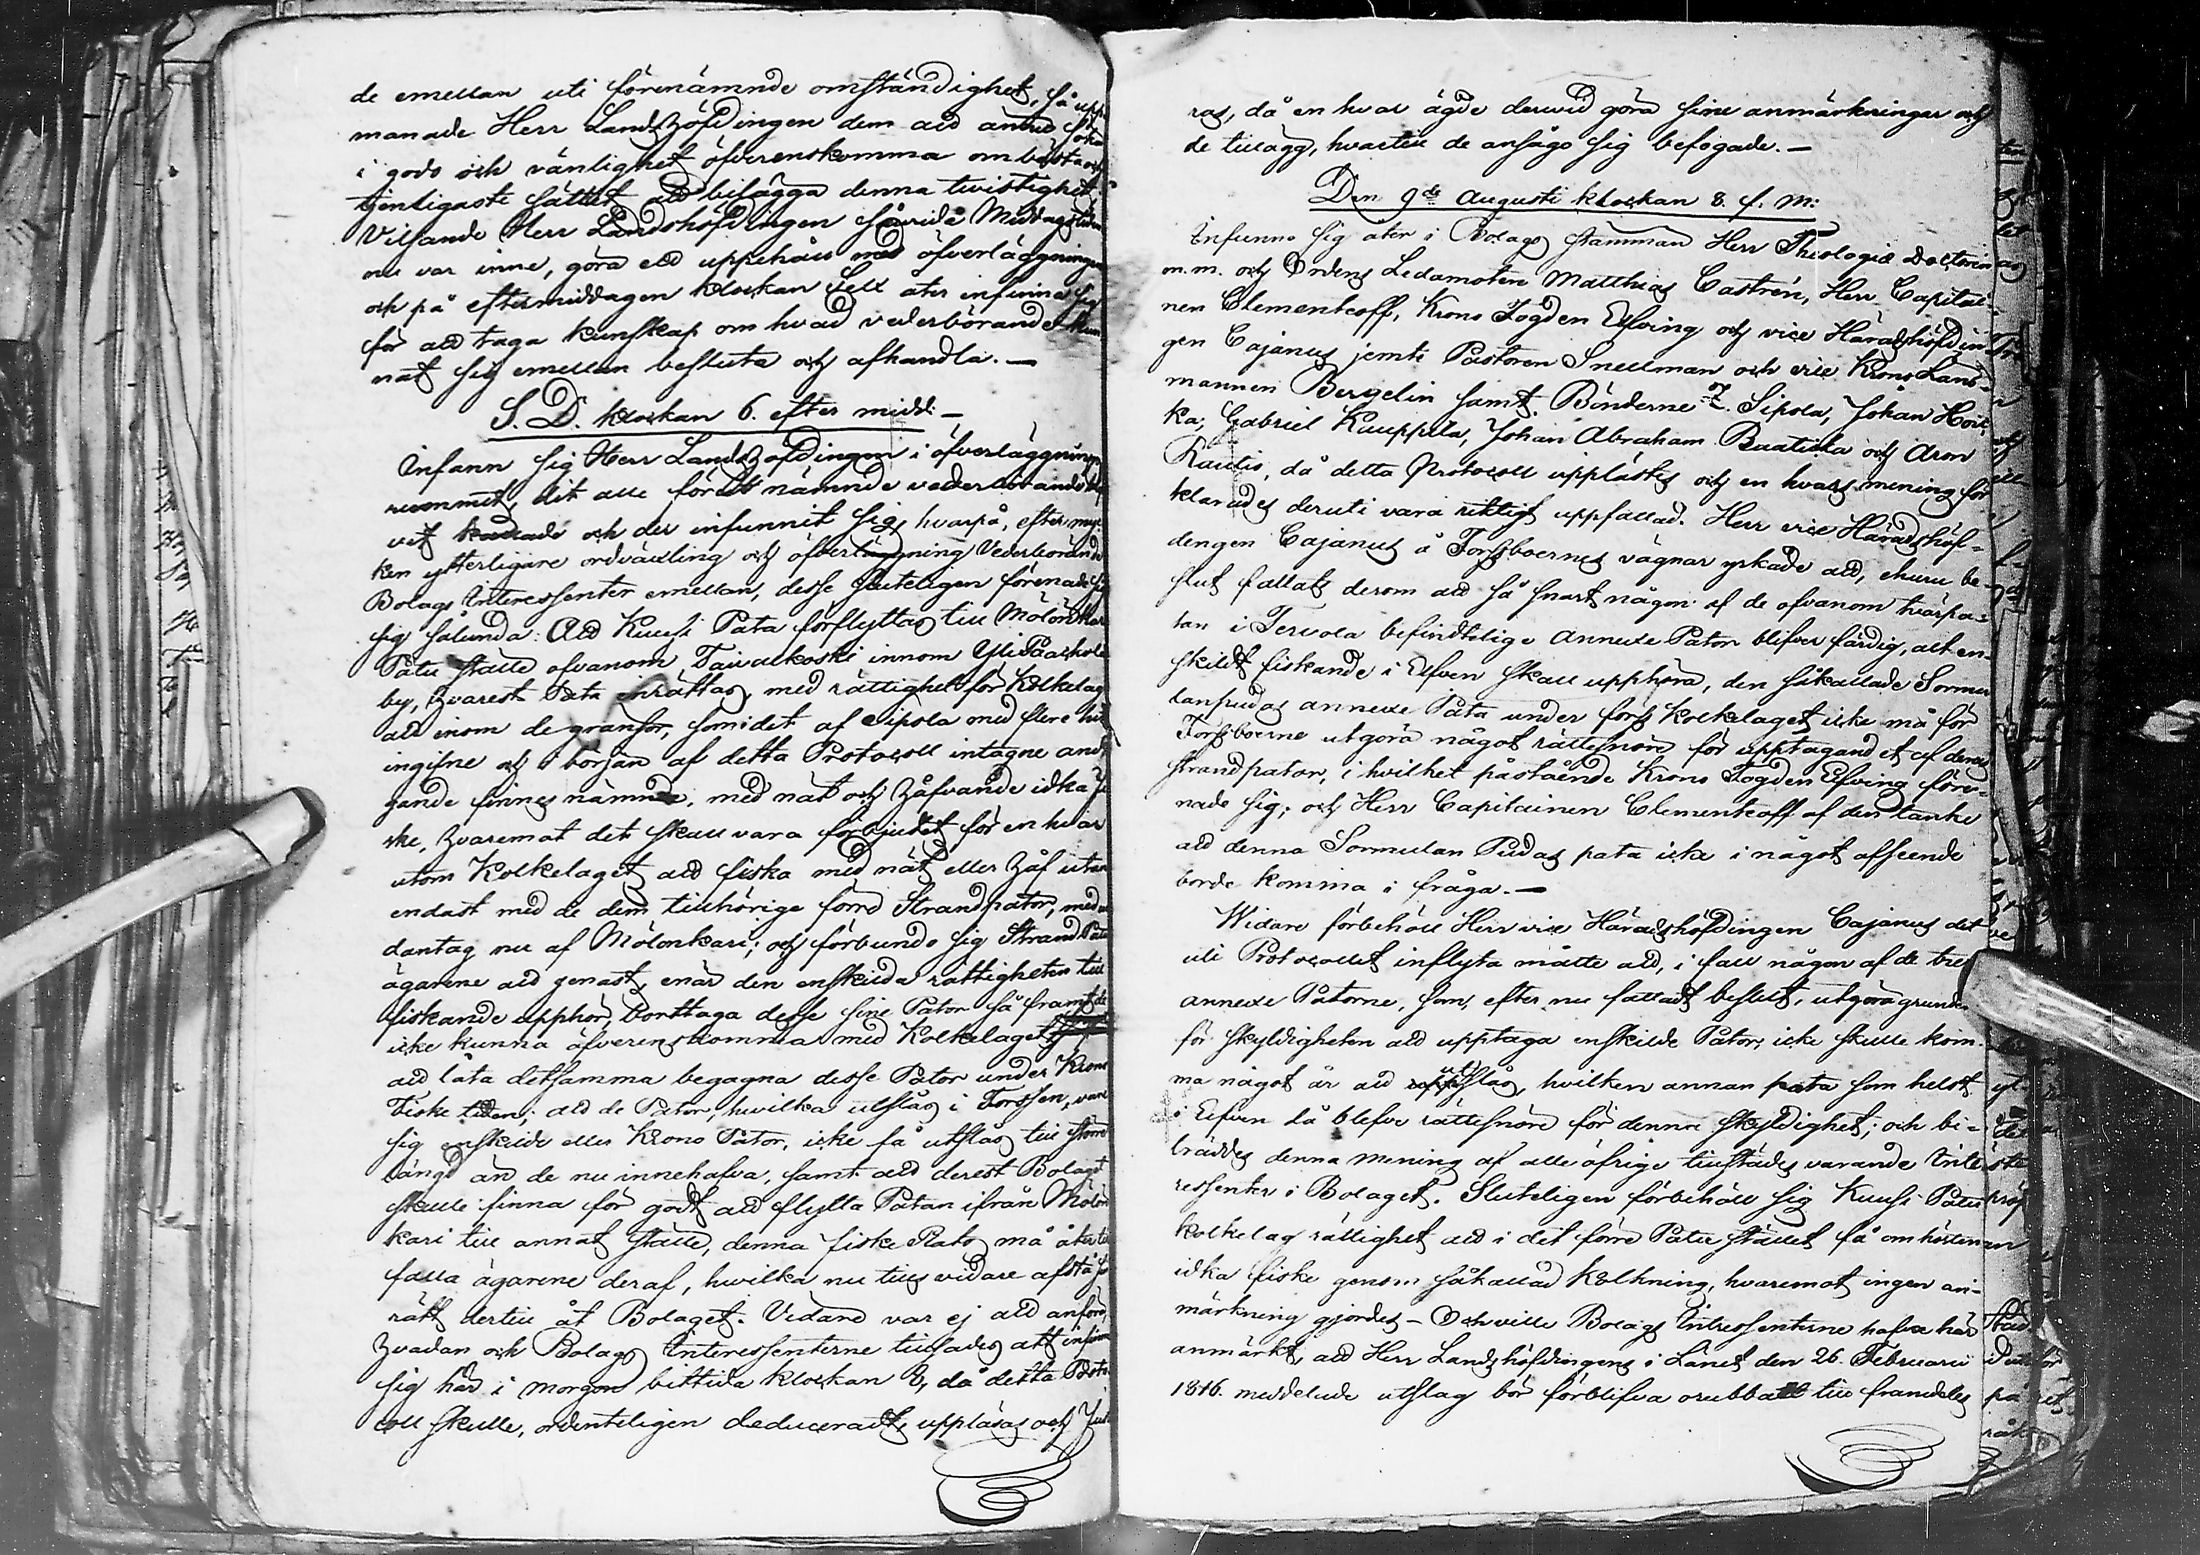 de emellan uti förenämnde omständighet, så upp¬
manade Herr Landshöfdingen dem att ännu söka
i godo och vänlighet öfverenskomma om bästa och
tjenligaste sättet att bilägga denna tvistighet
Viljande Herr Landshöfdingen som Middagstiden
nu var inne, göra ett uppehåll med öfverläggningen
och på eftermiddagen klockan Sex åter infinna sig
för att taga kunskap om hvad vederbörande kun
nat sig emellan besluta och afhandla. —
S. D. klockan 6. efter midd: —
Infann sig Herr Landshöfdingen i öfverläggnings
rummet, dit alle förutnämnde vederbörande blif
vit kallade och der infunnit sig, hvarpå, efter myc
ken ytterligare ordväxling och öfverläggning Vederbörande
Bolags Interessenter emellan, desse sluteligen förenade
sig sålunda: Att Kuusi Pata förflyttas till Mölönkari
Patu ställe ofvanom Taivalkoski innom Yli Paakkola
by, hvarest Pata inrättas, med rättighet för Kolkelag
att inom de gränsor, som i det af Sipola med flere hit
ingifne och i början af detta Protocoll intagne an¬
gande finnes nämnde, med nät och håf vande idka fi
ske, hvaremot det skall vara förbjudet för en hvar
utom Kolkelaget att fiska med nät eller håf utan
endast med de dem tillhörige förre Strandpator, med un
dantag nu af Mölönkari; och förbundo sig Strand Patu
ägarene att genast, enär den enskilda rättigheten till
fiskande upphör, borttaga desse sine Pator så framt de
icke kunna öfverenskomma med Kolkelaget
att låta detsamma begagna desse Pator under Krono
Fiske tiden; att de Pator, hvilka utslås i Forssen, vare
sig enskilde eller Krono Pator, icke få utslås till större
längd än de nu innehafva, samt att derest Bolaget
skulle finna för godt att flytta Patan ifrån Mölön
kari till annat ställe, denna fiske Plats må åter till
falla ägarene deraf, hvilka nu tills vidare afstå sin
rätt dertill åt Bolaget. Vidare var ej att anföra,
hvadan och Bolags Interessenterne tillsades att infinna
sig här i morgon bittida klockan 8, då detta Proto
coll skulle, ordenteligen deduceradt, uppläsas och Juste
ras, då en hvar ägde dervid göra sine anmärkningar och
de tillägg, hvartill de ansågo sig befogade. —
Den 9de Augusti klockan 8. f. m:
Infunno sig åter i Bolags stämman Herr Theologiæ Doctorn
m. m. och Ordens Ledamoten Matthias Castrén, Herr Capitai¬
nen Clementeoff, Krono Fogden Elfving och vice Häradshöfdin
gen Cajanus jemte Pastoren Snellman och vice Krono Läns¬
mannen Bergelin samt Bönderne Z. Sipola, Johan Hoik
ka, Gabriel Kauppila, Johan Abraham Raatikka och Aron
Rautio, då detta Protocoll upplästes och en hvars mening för
klarades deruti vara riktigt uppfattad. Herr vice Häradshöf¬
dingen Cajanus å Forssboernes vägnar yrkade att, ehuru be¬
slut fattats derom att så snart någon af de ofvanom tvärpa¬
tan i Tervola befindtelige annexe Pator blifver färdig, allt en¬
skildt fiskande i Elfven skall upphöra, den såkallade Sormu
lanpudas annexe Pata under förs Kolkelaget icke må för
Forssboerne utgöra något rättesnöre för upptagandet af deras
strandpator, i hvilket påstående Krono Fogden Elfving före¬
nade sig; och Herr Capitainen Clementeoff af den tanke
att denna Sormulan Pudas pata icke i något afseende
borde komma i fråga. —
Widare förbehöll Herr vice Häradshöfdingen Cajanus det
uti Protocollet inflyta måtte att, i fall någon af de tre
annexe Patorne, som, efter nu fattadt beslut, utgöra grund
för skyldigheten att upptaga enskilde Pator, icke skulle kom¬
ma något år att utslås, hvilken annan pata som helst
i Elfven då blefve rättesnöre för denna skyldighet; och bi¬
träddes denna mening af alle öfrige tillstädes varande Inte
ressenter i Bolaget. Sluteligen förbehöll sig Kuusi Patu
kolkelag rättighet att i det förre Patu stället få om hösten
idka fiske genom såkallad Kolkning, hvaremot ingen an¬
märkning gjordes — Och ville Bolags Intressenterne hafva här
anmärkt, att Herr Landshöfdingens i Länet den 26. Februarii
1816. meddelade utslag bör förblifva orubbadt till framdeles